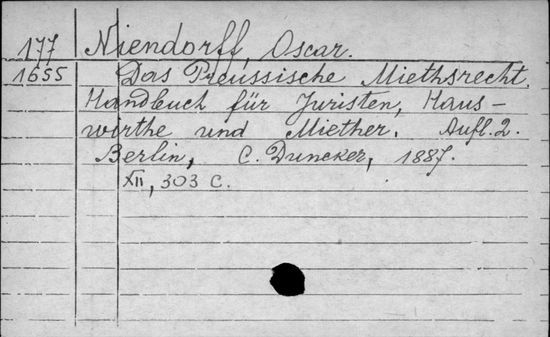 177 Niendorff, Oscar.
1655 Das Preussische Miethsrecht.
Handbuch für Juristen, Haus-
wirthe und Miether. Aufl. 2.
Berlin, C. Duncker, 1887.
XII, 303 C.